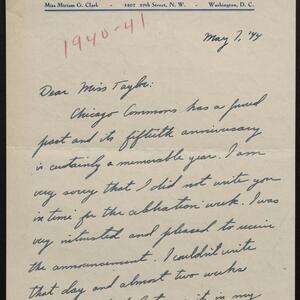 Miss Miriam G. Clark 2407 27th Street, N. W. Washington, D. C.
1940-41
May 7, '44
Dear Miss Taylor:
Chicago Commons has a proud
past and its fiftieth anniversary
is certainly a memorable year. I am
very sorry that I did not write you
in time for the celebration week. I was
very interested and pleased to receive
the announcement. I couldn't write
that day and almost two weeks
it in my